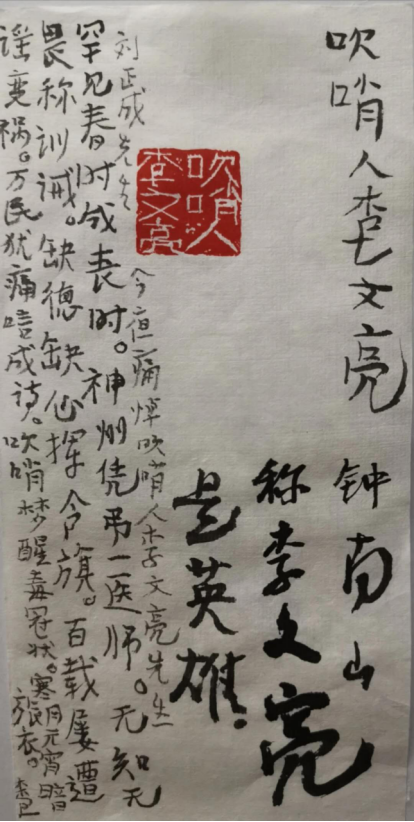 吹哨人李文亮
钟南山
称李文亮
是英雄。
吹哨人
李文亮
刘正成先生
今夜痛悼吹哨人李文亮先生
罕见春时成丧时。神州凭吊一医师。无知无
畏称训诫。缺德缺心挥令旗。百载屡遭
谣变祸。万民犹痛噎成诗。吹哨梦醒毒冠状。寒月元宵暗
衣。